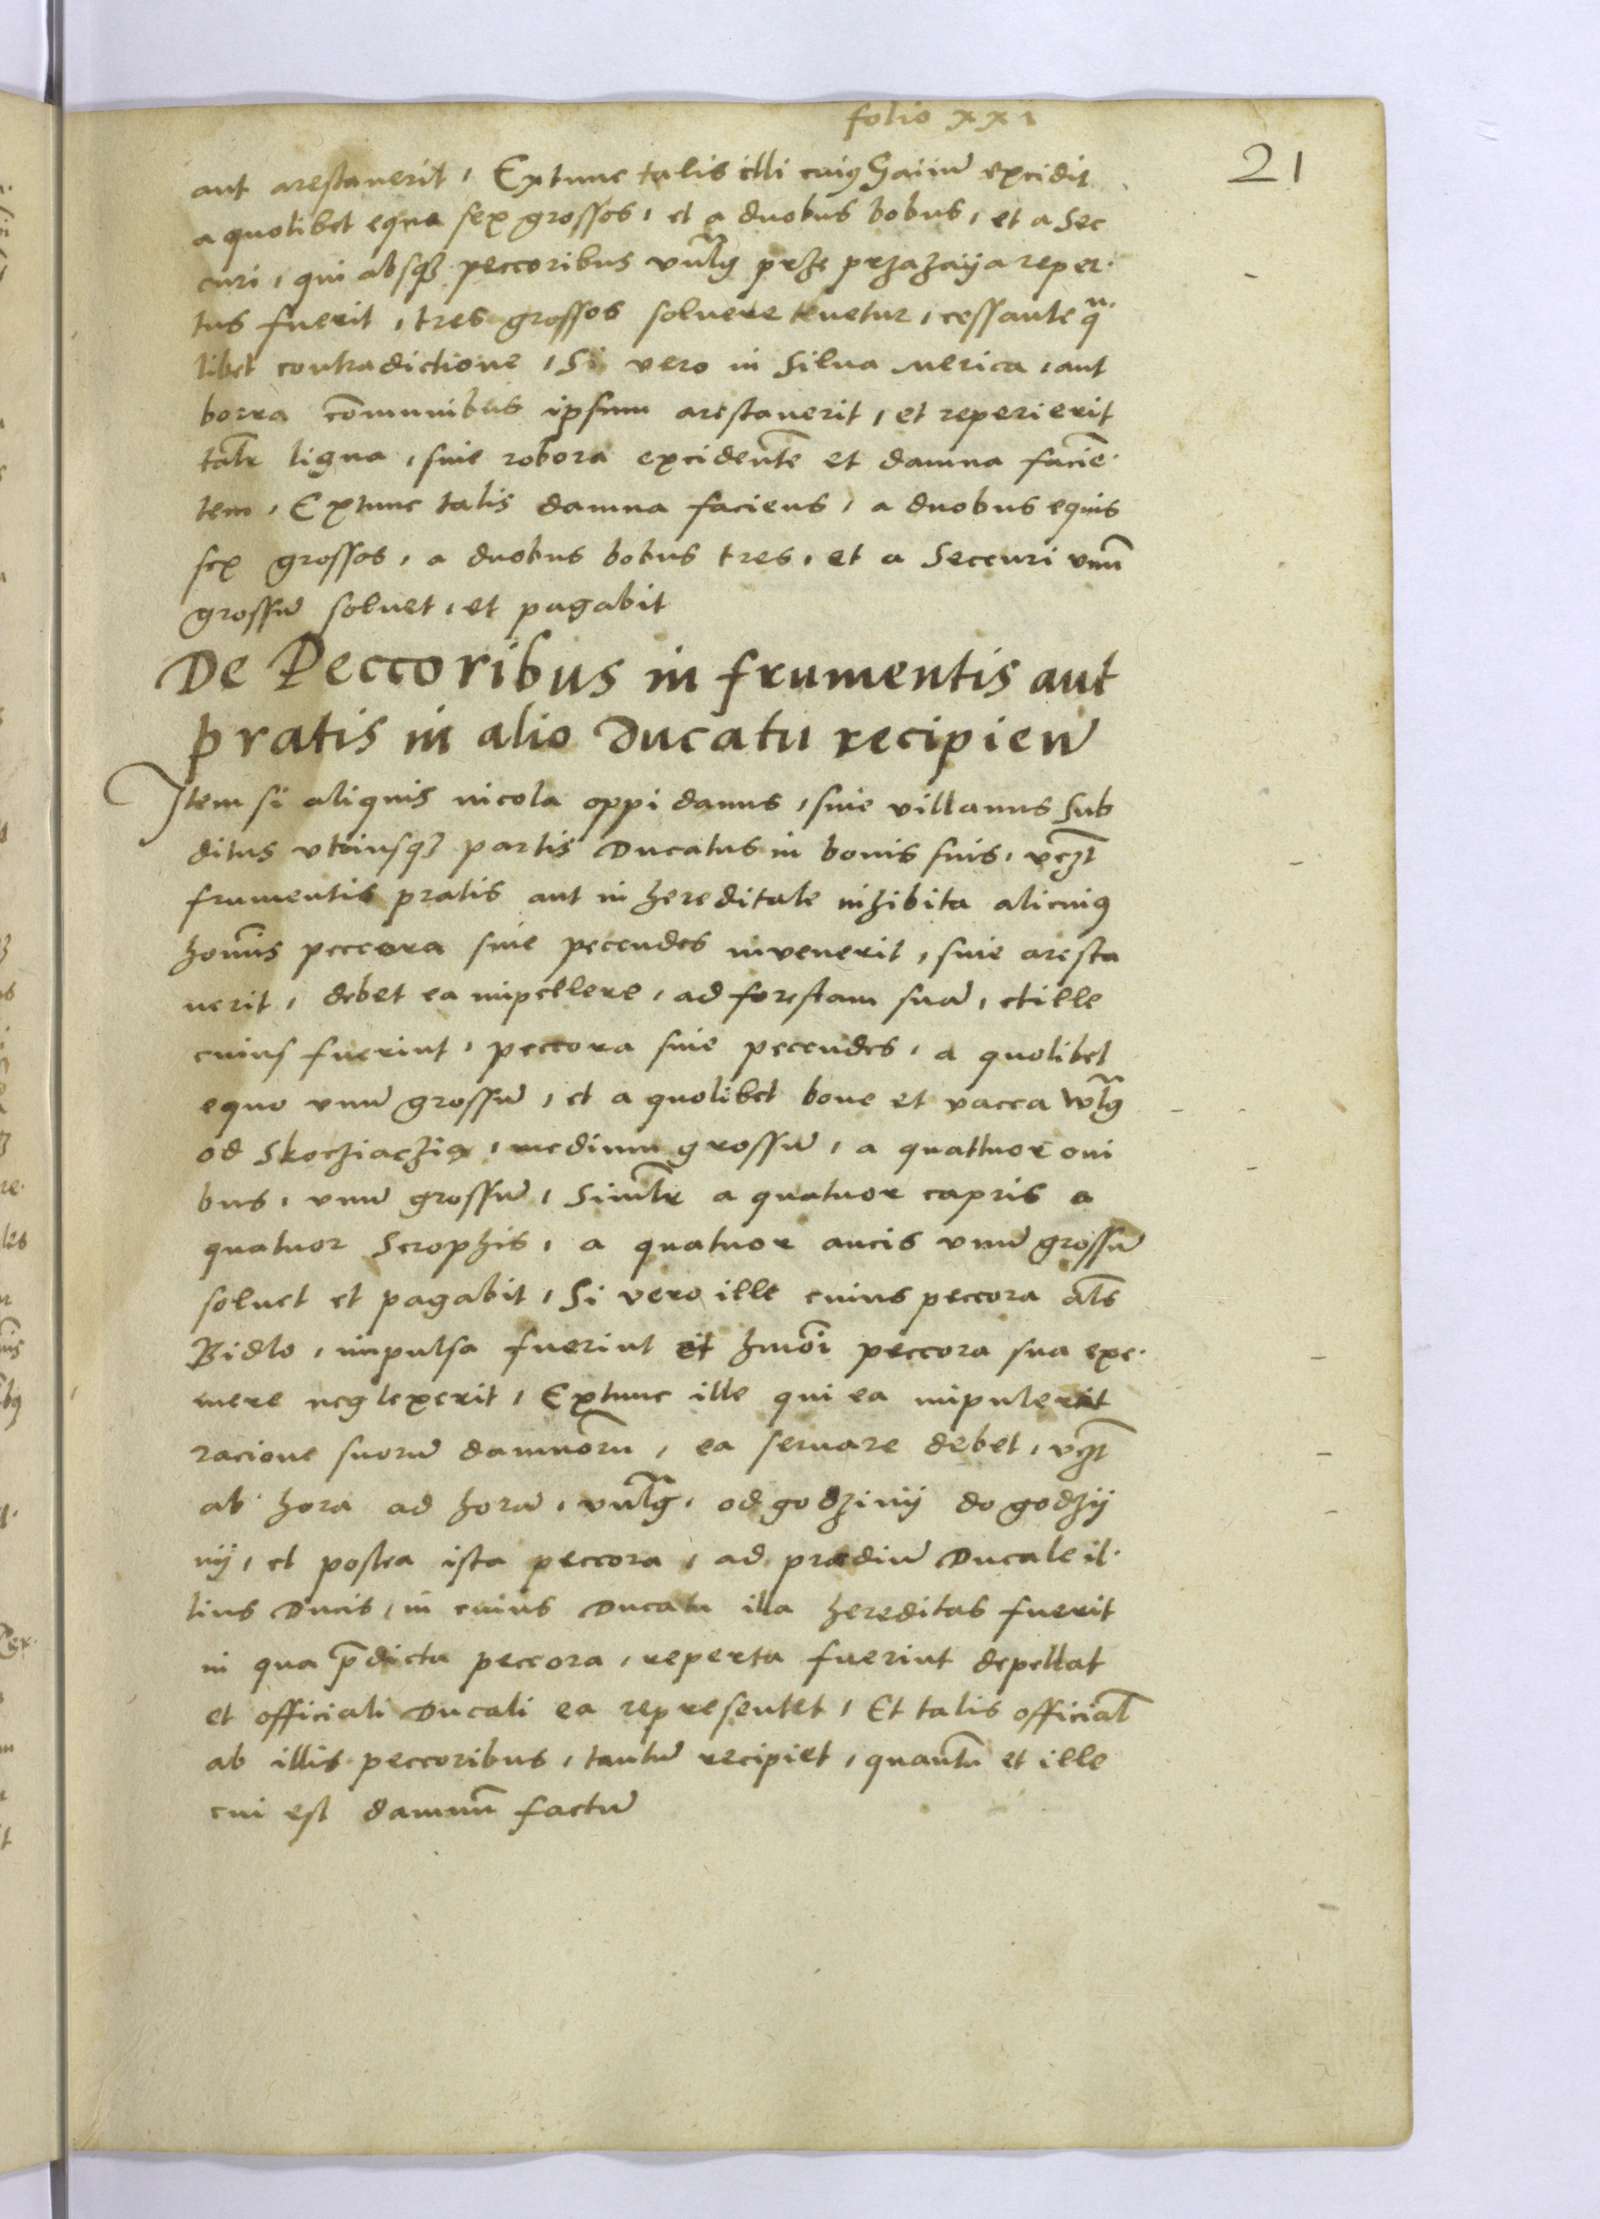 folio xxi
21
aut arestauerit, Extunc talis illi cuiꝯ Gaiiū excidit
a quolibet equa sex grossos, et a duobus bobus, et a Sec
curi, qui absqꝫ peccoribus vulg̃ prze przazaÿa reper
tus fuerit, tres grossos soluere tenetur, cessante q
libet contradictione, Si vero in Silua merica, aut
borra com̃unibus ipsum arestauerit, et reperierit
talr̃ ligna, siue robora excidente᷉ et damna facie᷉
tem, Extunc talis damna faciens, a duobus equis
sex grossos, a duobus bobus tres, et a Seccuri vnū
grossū soluet, et pagabit
De Peccoribus in frumentis aut
pratis in alio Ducatu recipien᷉
Item si aliquis incola oppidanus, siue villanus Sub
ditus vtriusqꝫ partis Ducatus in bonis suis, vꝫt
frumentis pratis aut in hereditate inhibita alicuiꝯ
homĩs peccora siue peccudes invenerit, siue aresta
uerit, debet ea impellere, ad forestam suā, et ille
cuius fuerint, peccora siue peccudes, a quolibet
equo vnū grossū, et a quolibet boue et vacca wlg̃
od Skocziaczia, medium grossū, a quattuor oui
bus, vnū grossū, Similr̃ a quatuor capris a
quatuor Scrophis, a quatuor aucis vnū grossū
soluet et pagabit, Si vero ille cuius peccora als̃
Bidlo, impulsa fuerint et hmõi peccora sua exe
mere neglexerit, Extunc ille qui ea impulerit
racione suorū damnorũ, ea seruare debet, vꝫt
ab hora ad horā, vulg̃, od godzinÿ do godzÿ
nÿ, et postea ista peccora, ad prædiū Ducale il
lius Ducis, in cuius Ducatu illa hereditas fuerit
in qua p̃dicta peccora, reperta fuerint depellat
et officiali Ducali ea representet, Et talis official̃
ab illis peccoribus, tantū recipiet, quantū et ille
cui est damnū factū